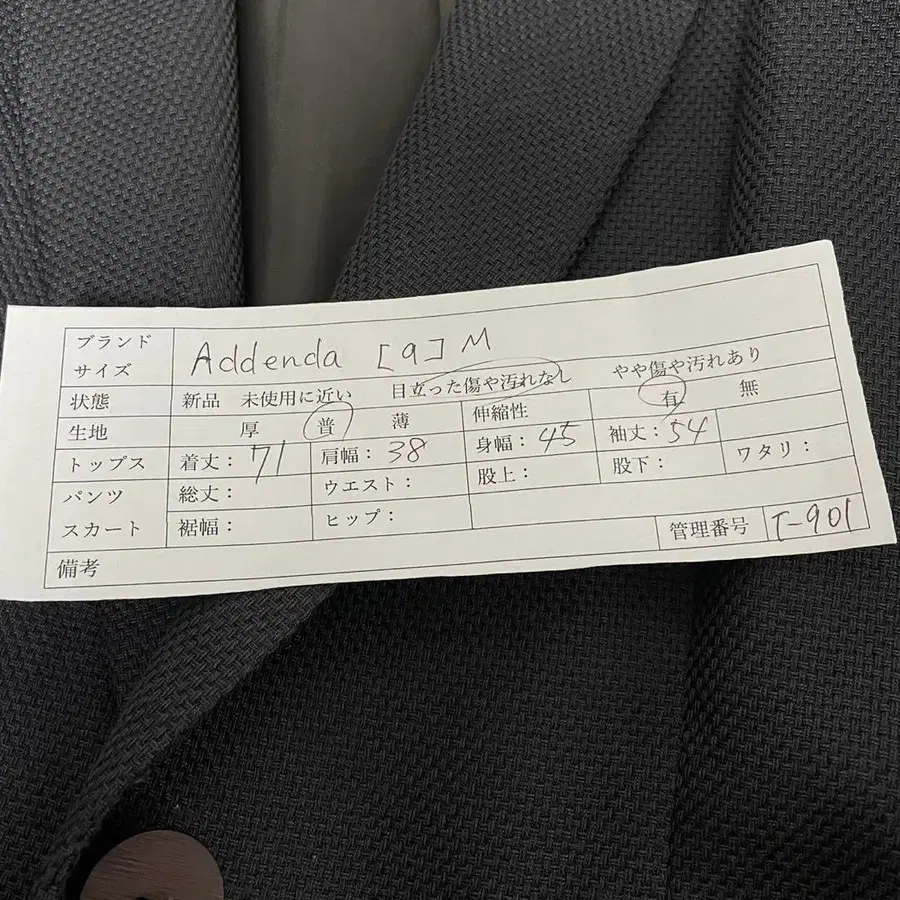 ブランド
サイズ
Addenda [9] M
状態 新品 未使用に近い 目立った傷や汚れなし やや傷や汚れあり
生地 厚 普 薄 伸縮性 有 無
トップス 着丈：71 肩幅：38 身幅：45 袖丈：54
パンツ 総丈： ウエスト： 股上： 股下： ワタリ：
スカート 裾幅： ヒップ：
管理番号 T-901
備考